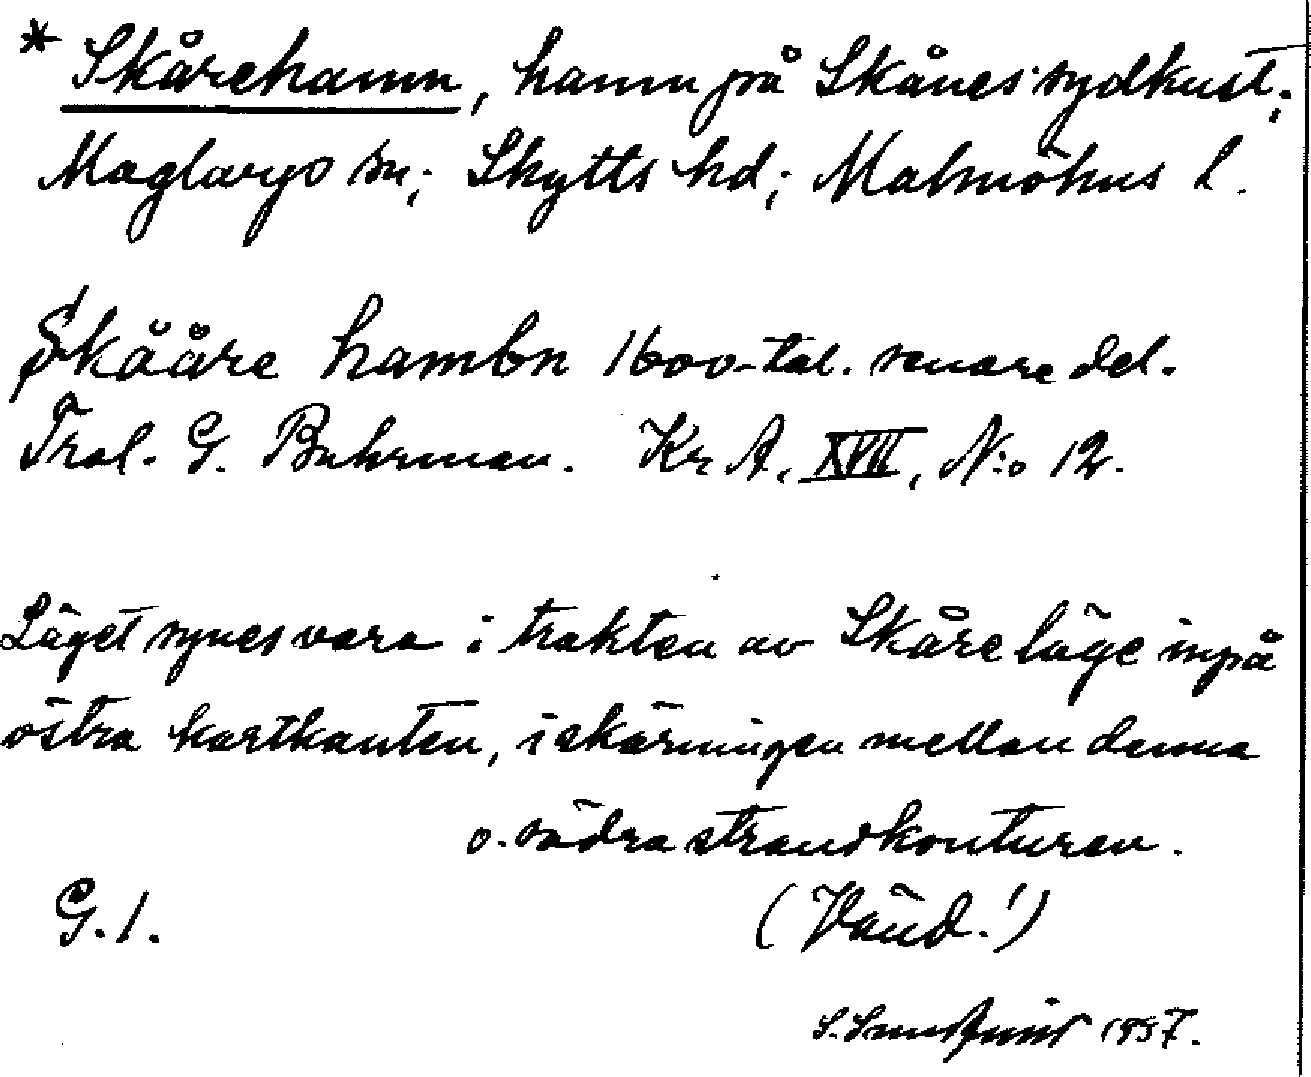 * Skårehamn, hamn på Skånes sydkust;
Maglarps sn; Skytts hd; Malmöhus l.
Skååre hambn 1600-tal. senare del.
Tral. G. Buhrman. Kr A, XVII, N:o 12.
Läget synes vara i trakten av Skåre läge inpå
östra kartkanten, i skärningen mellan denna
o. södra strandkonturen.
G.1. (Vänd!)
S. 1957.